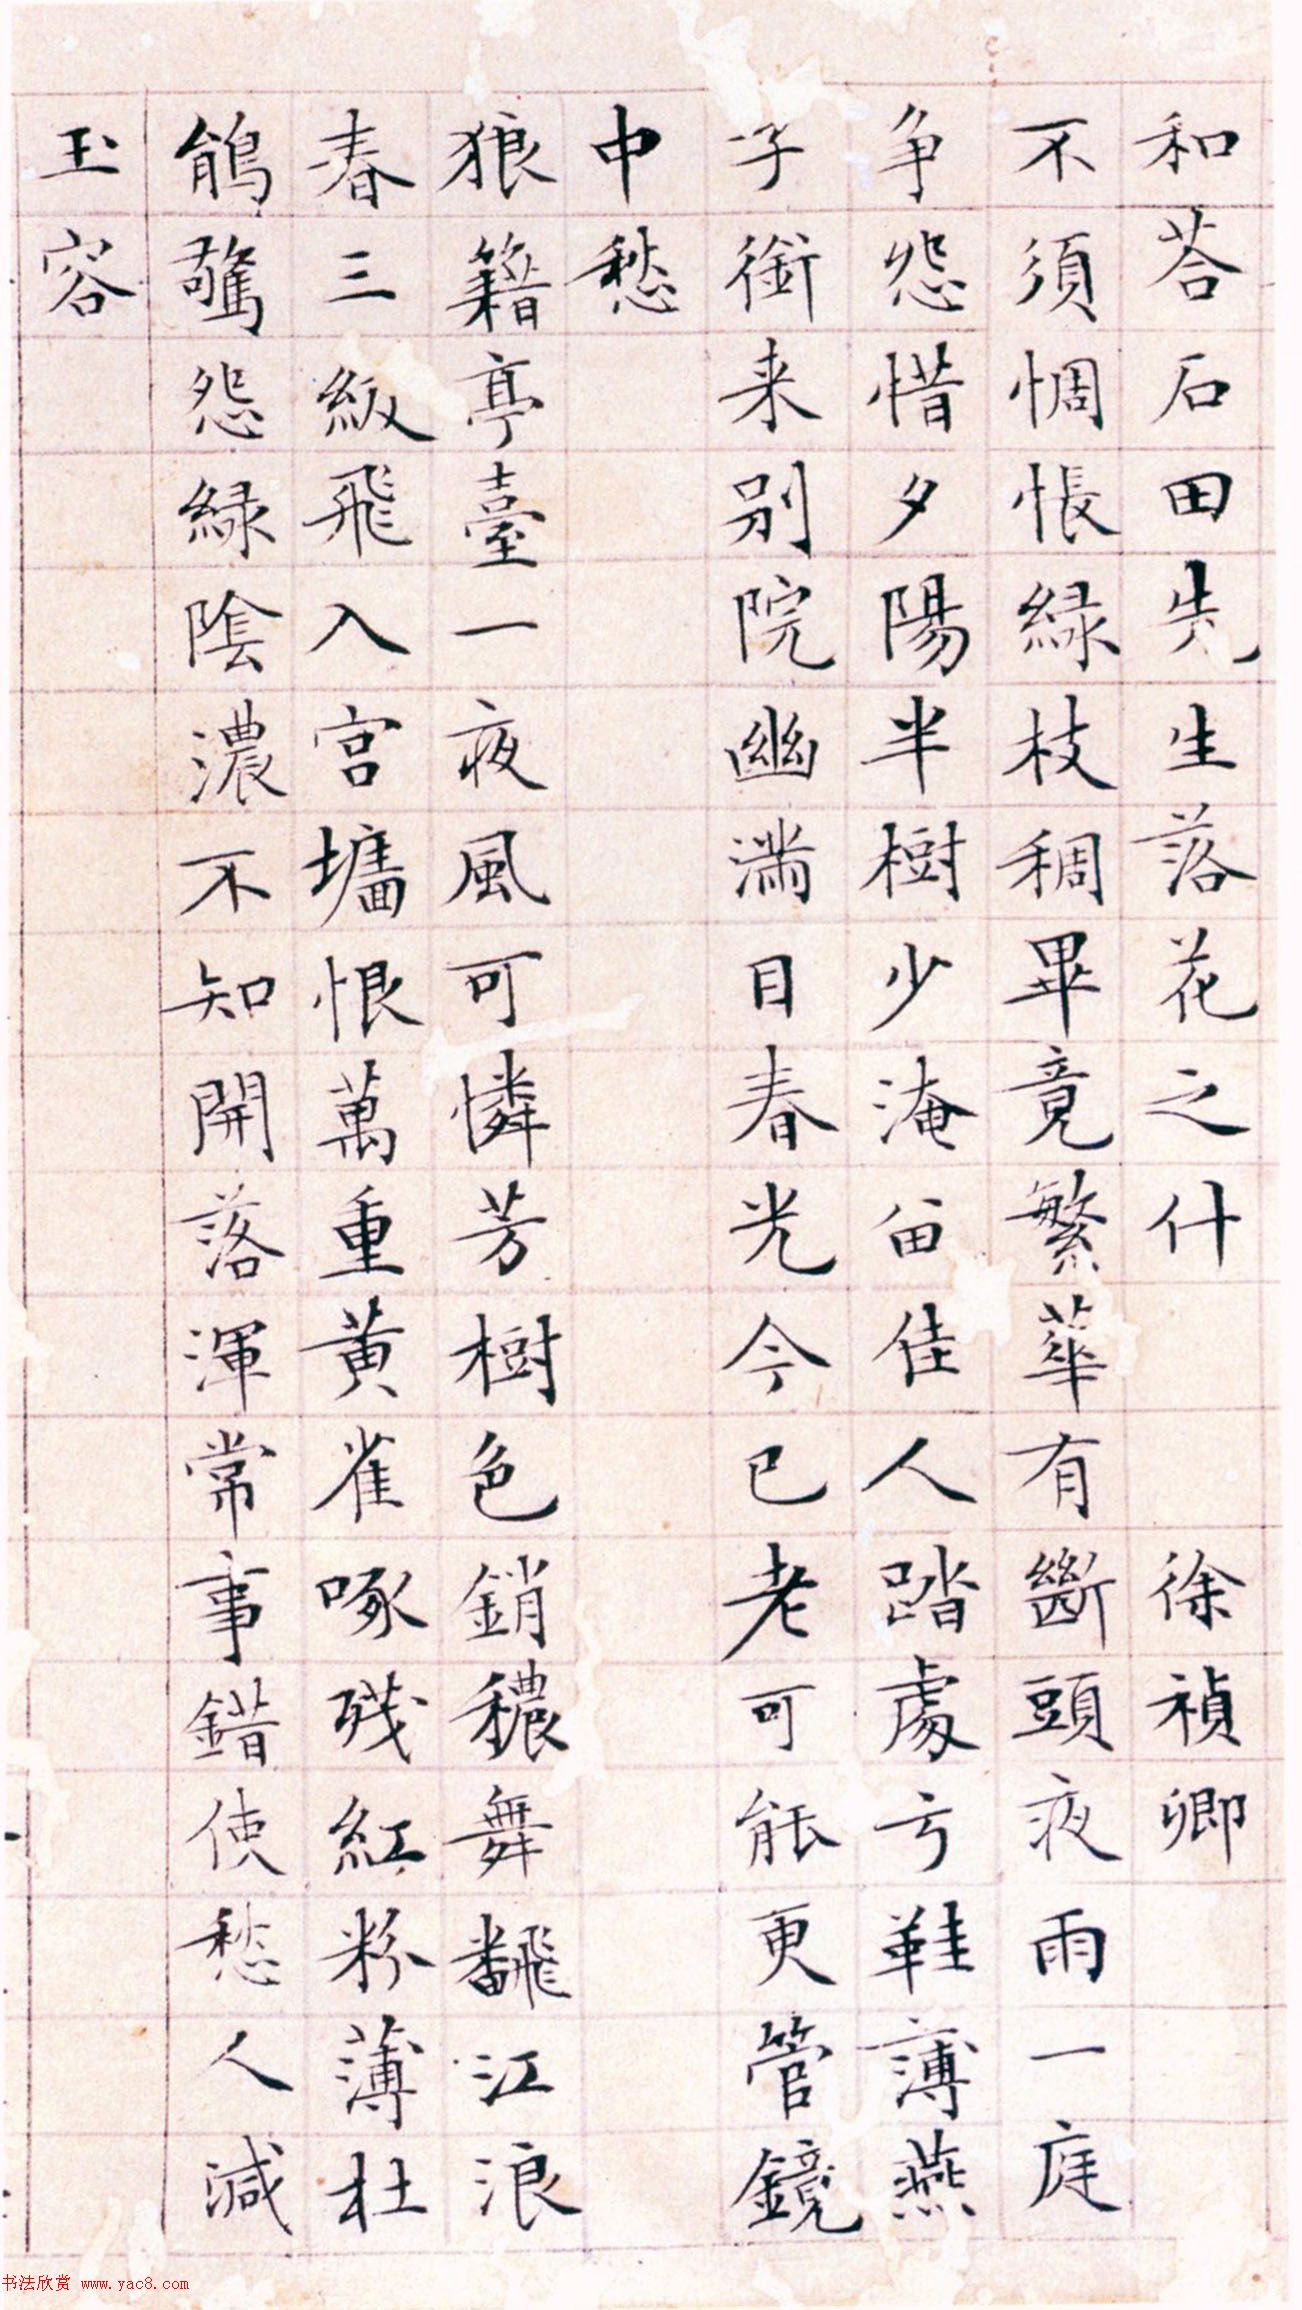 和荅石田先生落花之什 徐禎卿
不須惆悵綠枝稠畢竟繁華有斷頭夜雨一庭
争怨惜夕陽半樹少淹畄佳人踏處亏鞋薄燕
子銜来别院幽滿目春光今已老可能更管鏡
中愁
狼籍亭臺一夜風可憐芳樹色銷穠舞飜江浪
春三級飛入宫墻恨萬重黄雀啄残紅粉薄杜
鵑驚怨綠陰濃不知開落渾常事錯使愁人減
玉容
书法欣赏 www.yac8.com